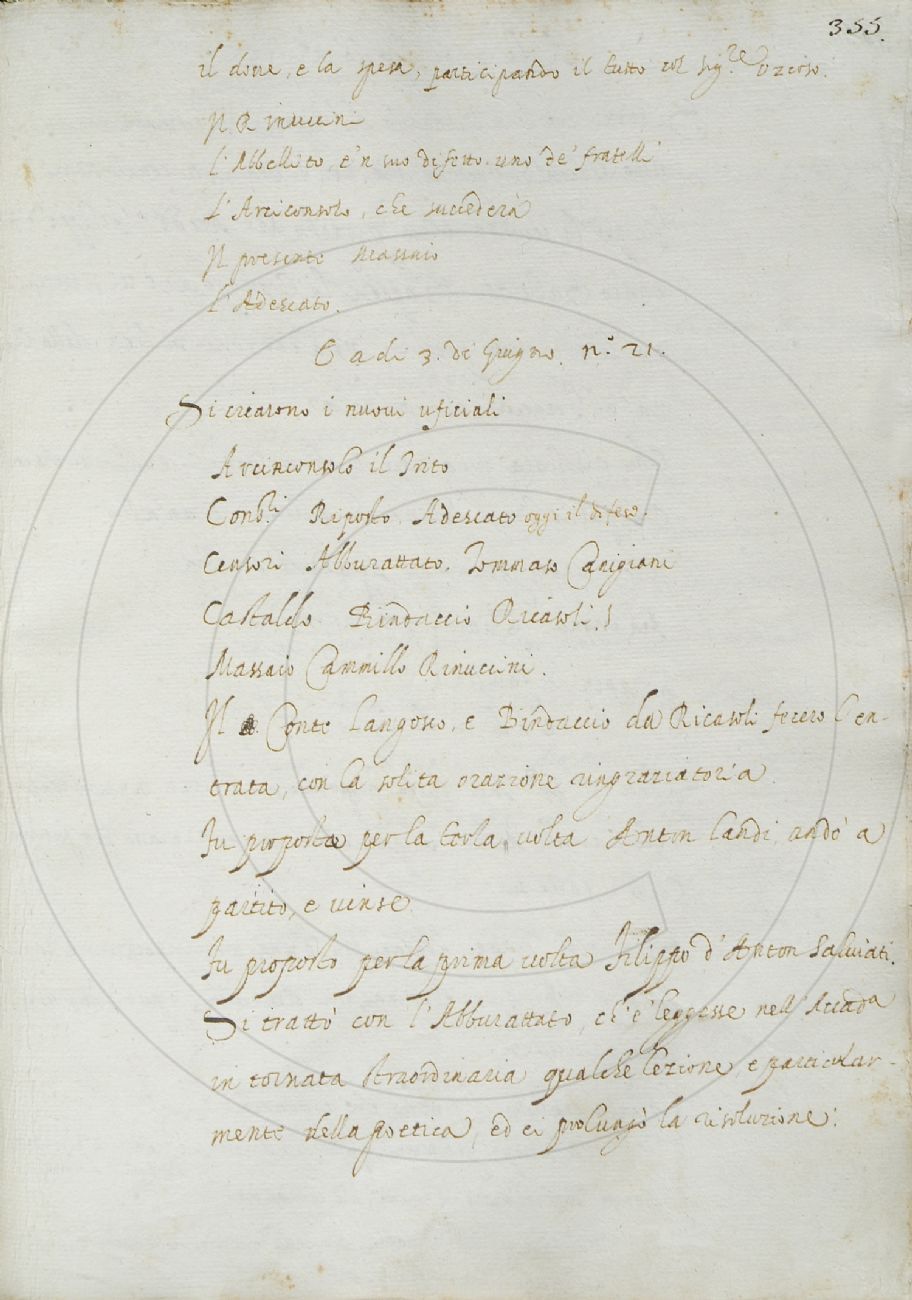 355.
il dove, e la spesa, participando il tutto col Sig.re Ozioso.
Il Rinuccini
l'Abbellito, e 'n suo difetto uno de' fratelli
L'Arciconsolo, che succederà
Il presente Massaio
l'Adescato.
E a di 3. di Giugno. n.° 21.
Si crearono i nuovi uficiali
Arciconsolo il Trito
Cons.ri Riposto. Adescato oggi il difeso.
Censori Abburattato. Tommaso Canigiani
Castaldo Bindaccio Ricasoli.
Massaio Cammillo Rinuccini.
Il Conte Langosco, e Bindaccio da Ricasoli fecero l'en-
trata, con la solita orazione ringraziatoria
Fu proposto per la terza volta Anton Landi, andò a
partito, e vinse
Fu proposto per la prima volta Filippo d'Anton Salviati.
Si trattò con l'Abburattato, ch'e' leggesse nell'Accad.a
in tornata straordinaria qualche lezione e particular-
mente della poetica, ed ei prolungò la risoluzione.